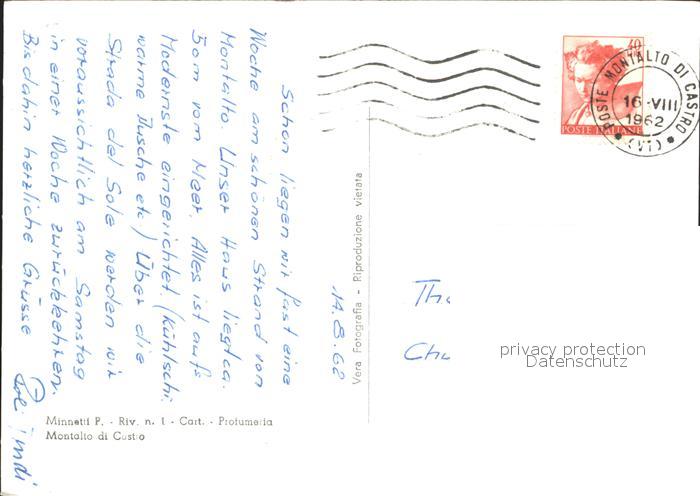 14.8.62
Schon liegen wir fast eine
Woche am schönen Strand von
Montalto. Unser Haus liegt ca.
50m vom Meer. Alles ist aufs
Modernste eingerichtet. (Kühlschr.
warme Dusche etc) Über die
Strada del Sole werden wir
voraussichtlich am Samstag
in einer Woche zurückkehren.
Bis dahin herzliche Grüsse
Vera Fotografia - Riproduzione vietata
Minnetti P. - Riv. n. 1 - Cart. - Profumeria
Montalto di Castro
40
POSTE ITALIANE
POSTE MONTALTO DI CASTRO
16 VIII
1962
(VT)
Th
Ch
privacy protection
Datenschutz